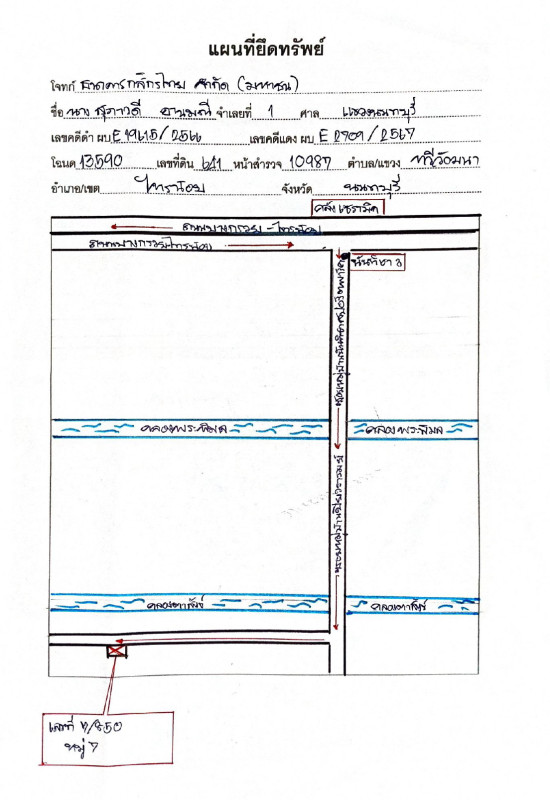 แผนที่ยึดทรัพย์
โจทก์ ธนาคารกสิกรไทย จำกัด (มหาชน)
ชื่อ นาง สุภาวดี จำเลยที่ 1 ศาล แขวงนนทบุรี
เลขคดีดำ ผบ E 1965/2566 เลขคดีแดง ผบ E 2709/2567
โฉนด 13590 เลขที่ดิน 641 หน้าสำรวจ 10987 ตำบล/แขวง ทวีวัฒนา
อำเภอ/เขต ไทรน้อย จังหวัด นนทบุรี
คลังเซรามิค
ถนนบางกรวย - ไทรน้อย
ถนนบางกรวย-ไทรน้อย
นันทิชา 3
คลองพระพิมล
คลองพระพิมล
คลองตาชม้
คลองตาชม้
เลขที่ 7/850
หมู่ 7